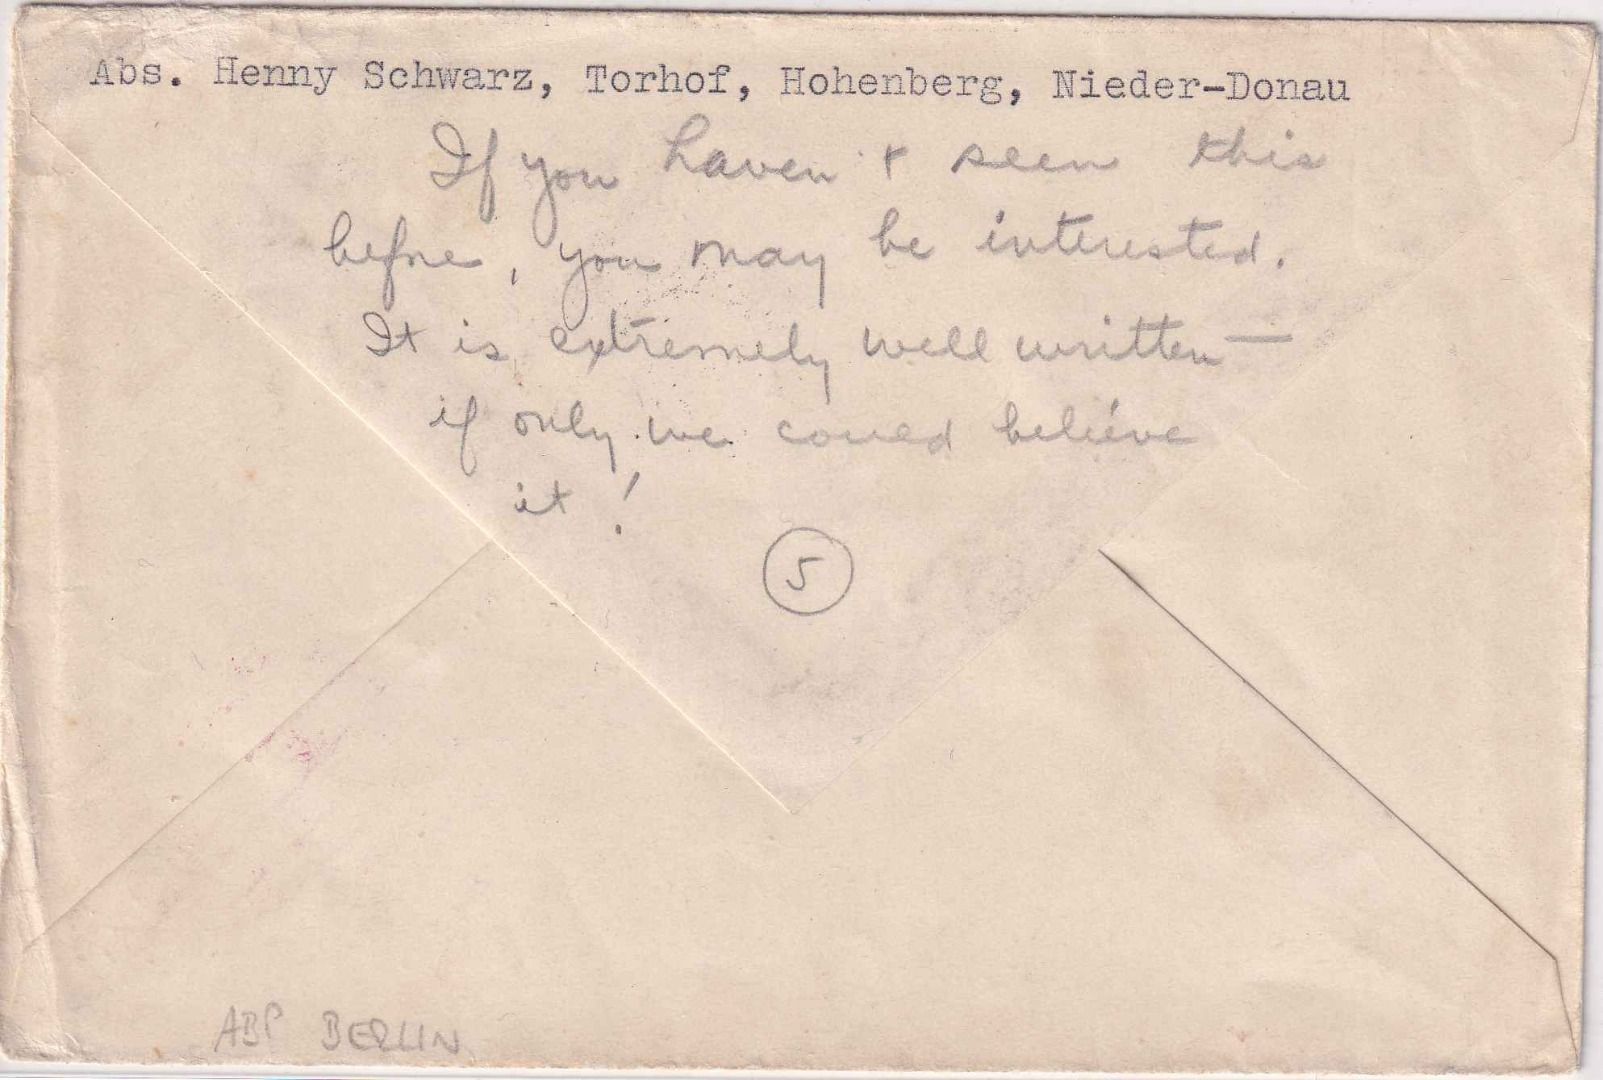 Abs. Henny Schwarz, Torhof, Hohenberg, Nieder-Donau
If you haven't seen this
before, you may be interested.
It is extremely well written —
if only we could believe
it!
5
ABP BERLIN